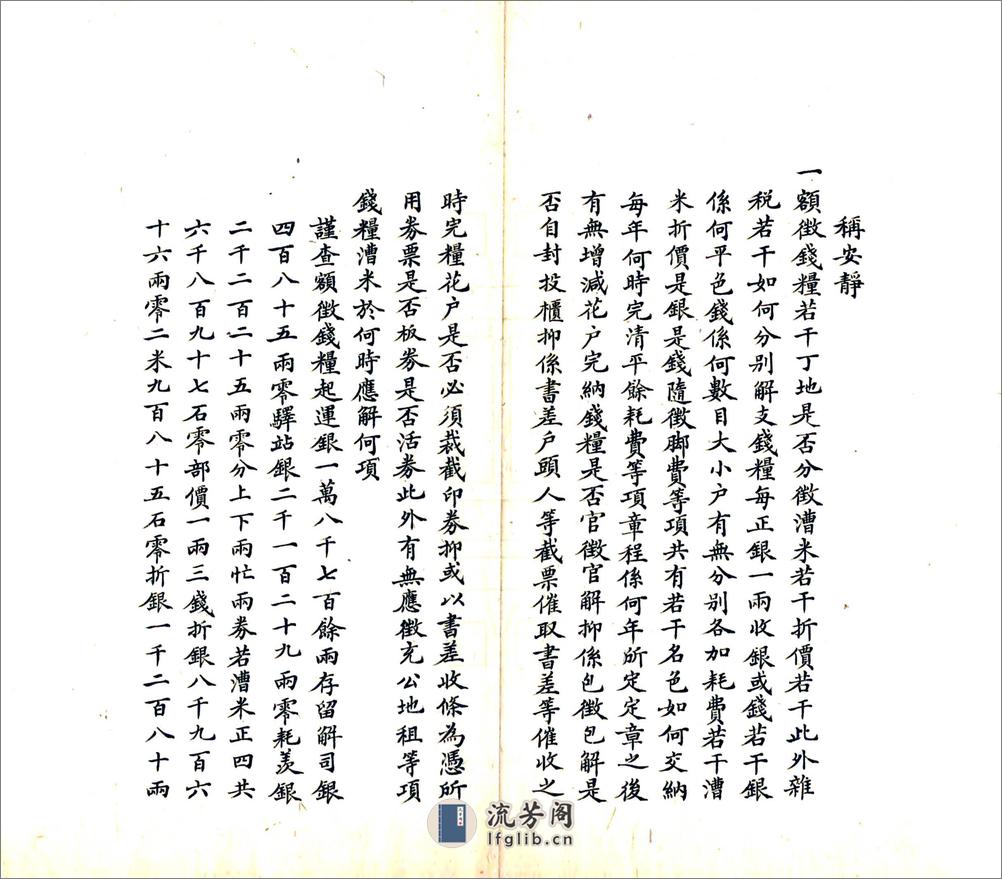 稱安靜
一額徵錢糧若干丁地是否分徵漕米若干折價若干此外雜
税若干如何分别解支錢糧每正銀一兩收銀或錢若干銀
係何平色錢係何數目大小户有無分别各加耗費若干漕
米折價是銀是錢隨徵脚費等項共有若干名色如何交納
每年何時完清平餘耗費等項章程係何年所定定章之後
有無增減花户完納錢糧是否官徵官解抑係包徵包解是
否自封投櫃抑係書差户頭人等截票催取書差等催收之
時完糧花户是否必須裁截印券抑或以書差收條為憑所
用券票是否板券是否活券此外有無應徵充公地租等項
錢糧漕米於何時應解何項
謹查額徵錢糧起運銀一萬八千七百餘兩存留解司銀
四百八十五兩零驛站銀二千一百二十九兩零耗羡銀
二千二百二十五兩零分上下兩忙兩券若漕米正四共
六千八百九十七石零部價一兩三錢折銀八千九百六
十六兩零二米九百八十五石零折銀一千二百八十兩
流芳阁
lfglib.cn